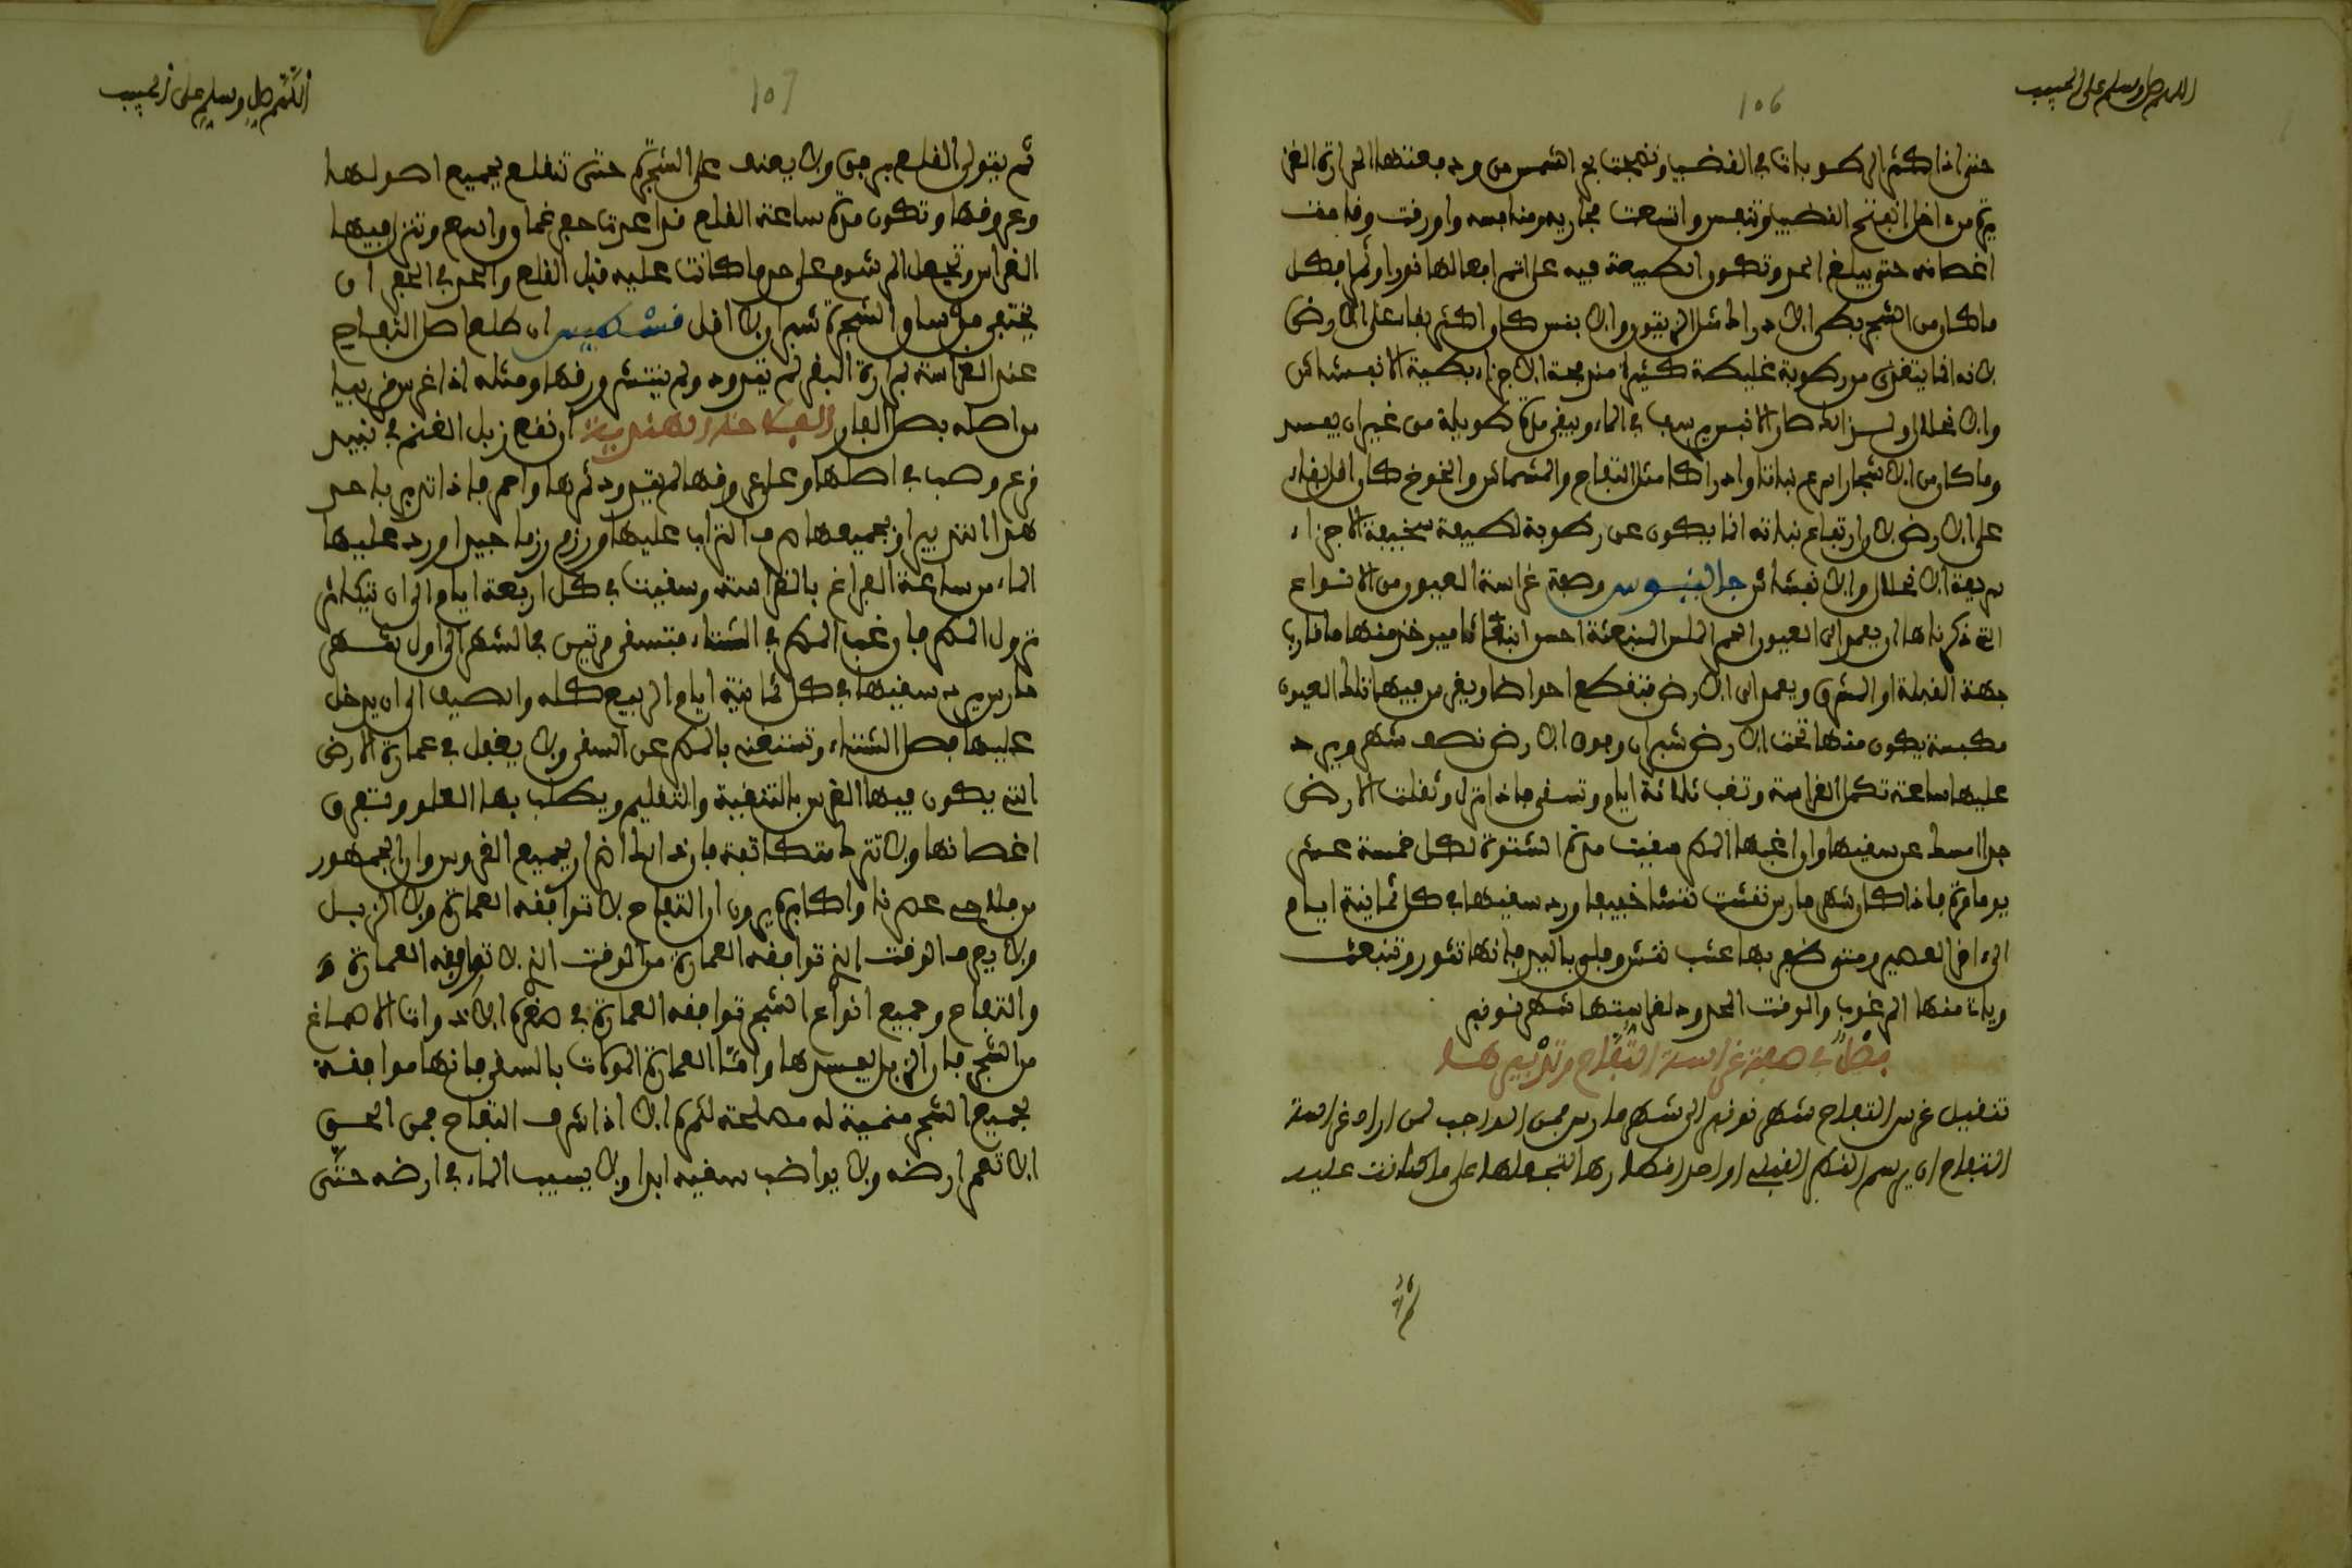 اللهم صل وسلم على الحبيب
106
حتى اذا كثر الرطوبات في القضيب وتهيجت بحر الشمس من ودبعتها الحرارة الغز
يزة من داخل انفتح القضيب وتنفس واتسعت مجاريه ومنافسه واورقت وقامت
اغصانه حتى يبلغ الحد وتكون الطبيعة فيه على اتم افعالها نورا وثمرا فكل
ما كان من الشجر بطي الادراك مثل الزيتون والانفس كان اكثر بقاء على الارض
لانه انما يتغذى من رطوبة غليظة كثيرة مندمجة الاجزاء بطية الانفشاش
والانحلال ولذلك صار الانفس يرسب في الماء ويبقى مدة طويلة من غير ان يفسد
وما كان من الاشجار اسرع نباتا وادراكا مثل التفاح والمشماش والخوخ كان اقل بقاء
على الارض لان ارتفاع نباته انما يكون عن رطوبة لطيفة سخيفة الاجزاء
سريعة الانحلال والانفشاش جالينوس وصفة غراسة العيون من الانواع
التي ذكرناها ان يعمد الى العيون الحمر الملس المنبعثة احسن انبعاثا فيوخذ منها ما قارب
جهة القبلة او الشرق ويعمد الى الارض فتقطع احواضا ويغرس فيها تلك العيون
مكبسة يكون منها تحت الارض شبران وفوق الارض نصف شهر ويرد
عليها ساعة تكمل الغراسة وتغب ثلاثة ايام وتسقى فاذا نزل وثقلت الارض
جدا امسك عن سقيها وان اغبها المطر سقيت مدة الشتوة لكل خمسة عشر
يوما مرة فاذا كان شهر مارس نقشت نقشا خفيفا ورد سقيها في كل ثمانية ايام
الى ءاخر العصير ومتى ظهر بها عشب نقش وقلع باليد فانها تثور وتنبعث
وياتي منها المرغوب والوقت المحدود لغراستها شهر نونبر
فصل في صفة غراسة التفاح وتدبيرها
تنقيل غرس التفاح شهر نونبر الى شهر مارس فمن الواجب لمن اراد غراسة
التفاح ان يرسم القطر القبلي او احد اقطارها لتجعلها على ما كانت عليه
ثم
اللهم صل وسلم على الحبيب
107
ثم يتولى القلع برفق ولا يعنف على الشجرة حتى تنقلع بجميع اصولها
وعروقها وتكون مدة ساعة القلع قد اعدت حفر غماق وواسع وتنزل فيها
الغراس وتجعل المرشوم على حد ما كانت عليه قبل القلع والحد في الحفر ان
يختفي من ساق الشجرة شبران لا اقل قسطوس ان طلع اصل التفاح
عند الغراسة بمرارة البقر لم يتدود ولم ينتثر ورقها ومثله اذا غرس قريبا
من اصله بصل الفار الفلاحة الهندية ان نقع زبل الغنم في نبيذ
قرع وصب في اصلها وعلى عروقها لم يتدود ثمرها واحمر فاذا تدبر باحد
هذا التدبير او بجميعها صرف التراب عليها ورزم رزما جيدا ورد عليها
الماء من ساعة الفراغ بالغراسة وسقيت في كل اربعة ايام الى ان يتكاثر
نزول المطر فان غب المطر في الشتاء فتسقى مرتين في الشهر الى اول شهر
مارس يرد سقيها في كل ثمانية ايام الربيع كله والصيف الى ان يدخل
عليها فصل الشتاء وتستغنى بالمطر عن السقي ولا يغفل في عمارة الارض
التي يكون فيها الغرس بالتنقية والتقليم ويطلب بها العلو وتفرق
اغصانها ولا تترك متكاثفة فان ذلك اذى لجميع الغروس وان الجمهور
من فلاحي عصرنا واكابرهم يرون ان التفاح لا توافقه العمارة ولا الزبل
ولا يعرف الوقت الذي توافقه العمارة من الوقت الذي لا توافقه العمارة
والتفاح وجميع انواع الشجر توافقه العمارة في صغره الا ذوات الاصماغ
من الشجر فان الزبل يفسدها واما العمارة المواكات بالسقي فانها موافقة
لجميع الشجر منمية له مصلحة لثمره الا اذا شرف التفاح فمن الحسن
الا تعمر ارضه ولا يواضب سقيه ابدا ولا يسيب الماء في ارضه حتى